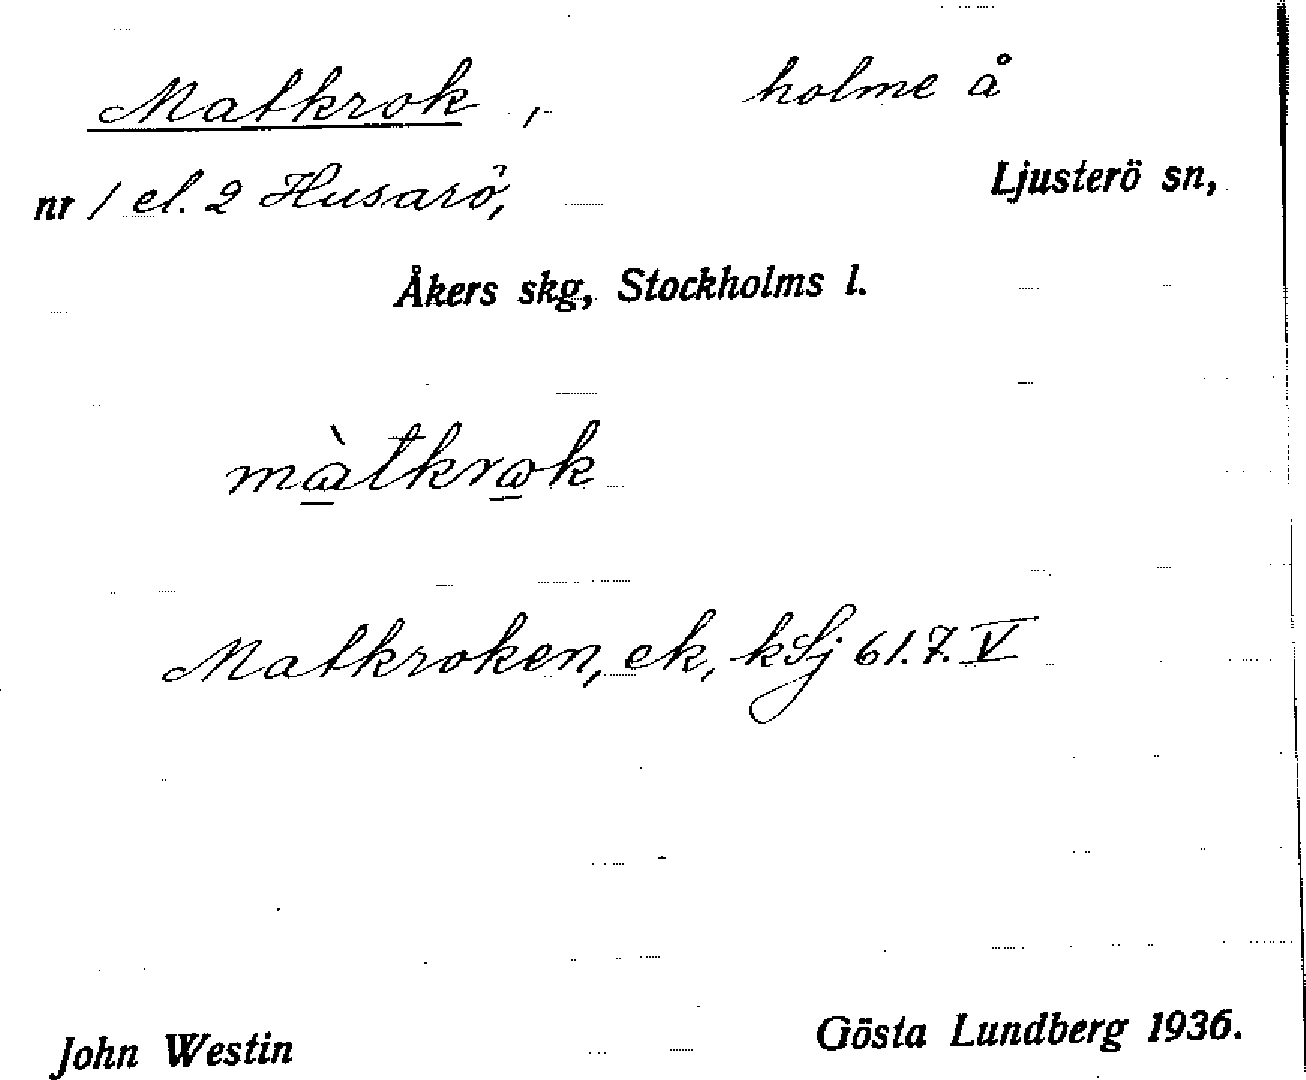 Matkrok, holme å
nr 1 el. 2 Husarö, Ljusterö sn,
Åkers skg, Stockholms l.
màtkrak
Matkroken, ek, kSj 61.7.V
John Westin Gösta Lundberg 1936.